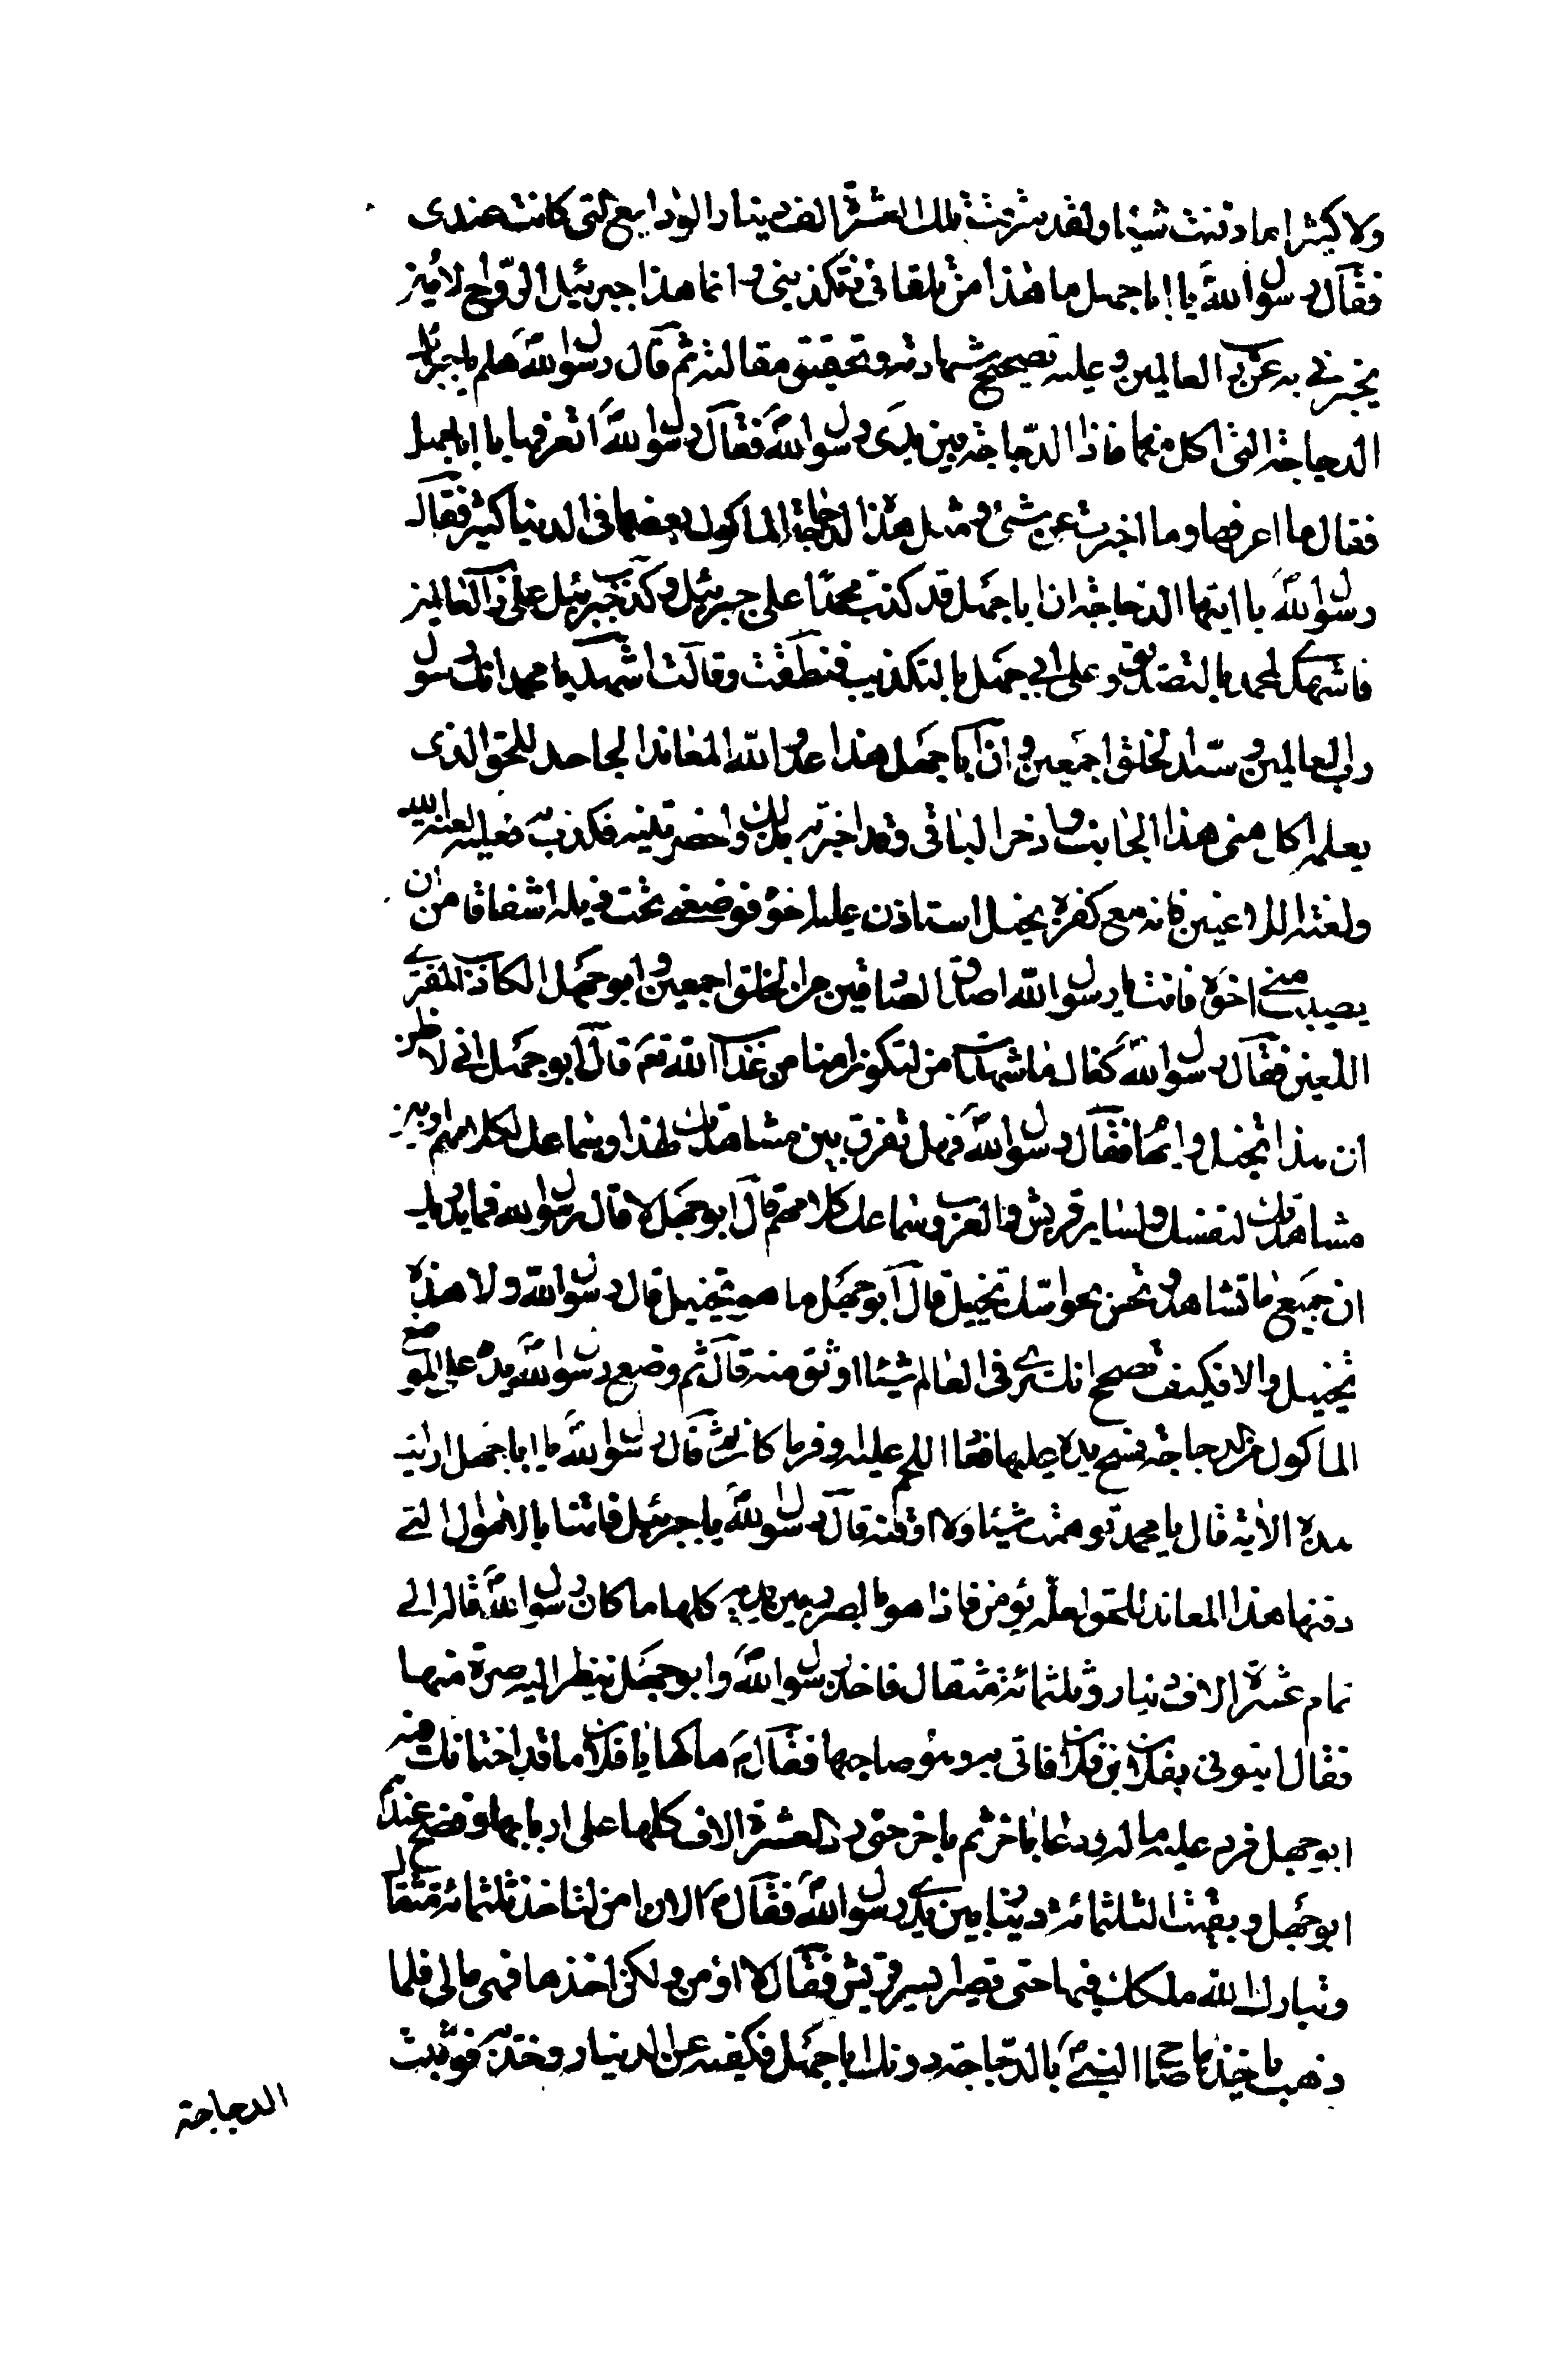 ولا كثيرا مما دفنت شيئا ولقد سرقت تلك العشرة الف دينار الودايع التى كانت عندى
فقال رسول الله يا ابا جهل ما هذا من تلقائى فتكذبنى وانما هذا جبرئيل الروح الامين
يخبرنى به عن رب العالمين وعليه تصحيح شهادته وتحقيق مقالته ثم قال رسول الله هلم يا جبرئيل
الدجاجة التى اكل منها فاذا الدجاجة بين يدى رسول الله فقال رسول الله اتعرفها يا ابا جهل
فقال ما اعرفها وما اخبرت عن شئ ومثل هذا الدجاجة الماكول بعضها فى الدنيا كثير فقال
رسول الله يا ايتها الدجاجة ان ابا جهل قد كذب محمدا على جبرئيل وكذب جبرئيل على رب العالمين
فاشهدى لمحمد بالتصديق وعلى ابى جهل بالتكذيب فنطقت وقالت اشهد يا محمد انك رسول
رب العالمين وسيد الخلق اجمعين وان ابا جهل هذا عدو الله المعاند الجاحد للحق الذى
يعلمه اكل منى هذا الجانب وادخر الباقى وقد اخبرته بذلك واحضرتنيه فكذب به فعليه لعنة الله
ولعنة اللاعنين فانه مع كفره بخيل استاذن عليه اخوه فوضعنى تحت ذيله اشفاقا من ان
يصيب منى اخوه فانت يا رسول الله اصدق الصادقين من الخلق اجمعين وابو جهل الكاذب المفترى
اللعين فقال رسول الله كفاك ما شاهدت امن لتكون امنا من عذاب الله تعم قال ابو جهل انى لاظن
ان هذا تخييل وايهام فقال رسول الله فهل تفرق بين مشاهدتك لهذا وسماعك لكلامهم وبين
مشاهدتك لنفسك ولساير قريش والعرب وسماعك كلامهم قال ابو جهل لا قال رسول الله فما يدريك
ان جميع ما تشاهد وتحس بحواسك تخييل قال ابو جهل ما هو تخييل قال رسول الله ولا هذه
تخييل والا فكيف تصحح انك ترى فى العالم شيئا اوثق منه قال ثم وضع رسول الله يده على الموضع
الماكول من الدجاجة فمسح يده عليها فعاد اللحم عليه اوفر ما كان ثم قال رسول الله يا ابا جهل ارايت
هذه الاية قال يا محمد توهمت شيئا ولا اوقنه قال رسول الله يا جبرئيل فاتنا بالاموال التى
دفنها هذا المعاند للحق لعله يؤمن فاذا هو بالصرر بين يديه كلها ما كان رسول الله قاله الى
تمام عشرة الاف دينار وثلثمائة مثقال فاخذ رسول الله وابو جهل ينظر اليه صرة منها
فقال ايتونى بفلان ابن فلان فاتى به وهو صاحبها فقال م هاكها يا فلان ما قد اختانك فيه
ابو جهل فرد عليه ماله ودعا باخر ثم باخر حتى رد العشرة الاف كلها على اربابها وفضح عندهم
ابو جهل وبقيت الثلثمائة دينار بين يدى رسول الله فقال م الان امن لتاخذ ثلثمائة مثقال
وتبارك الله ملكك فيها حتى تصير ايسر قريش فقال لا اؤمن ولكن اخذها فهى مالى فلما
ذهب ياخذها صاح النبى بالدجاجة دونك ابا جهل فكفيه عن الدنيار وخذيه فوثبت
الدجاجة